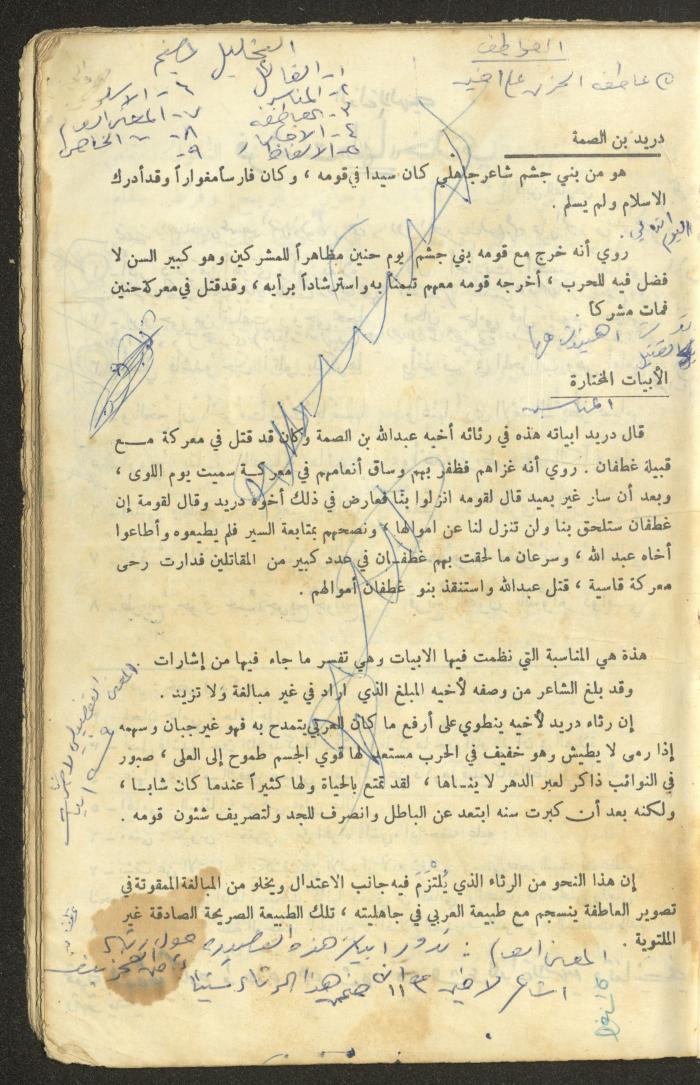 العواطف
التحليل
عاطفة الحزن على اخيه
١- القائل
٢- المناسبة
٣- العاطفة
٤- الافكار
٥- الالفاظ
٧- المعنى العام
٨- الخاص
٩-
دريد بن الصمة
هو من بني جشم شاعر جاهلي كان سيدا في قومه ، وكان فارساً مغواراً وقد أدرك
الاسلام ولم يسلم .
روي أنه خرج مع قومه بني جشم يوم حنين مظاهراً للمشركين وهو كبير السن لا
فضل فيه للحرب ، أخرجه قومه معهم تيمناً به واسترشاداً برأيه ، وقد قتل في معركة حنين
فمات مشركاً .
الأبيات المختارة
المناسبة
قال دريد ابياته هذه في رثائه أخيه عبدالله بن الصمة وكان قد قتل في معركة مـــع
قبيلة غطفان . روي أنه غزاهم فظفر بهم وساق أنعامهم في معركة سميت يوم اللوى ،
وبعد أن سار غير بعيد قال لقومه انزلوا بنا فعارض في ذلك أخوه دريد وقال لقومه إن
غطفان ستلحق بنا ولن تنزل لنا عن اموالها ، ونصحهم بمتابعة السير فلم يطيعوه وأطاعوا
أخاه عبد الله ، وسرعان ما لحقت بهم غطفان في عدد كبير من المقاتلين فدارت رحى
معركة قاسية ، قتل عبدالله واستنقذ بنو غطفان أموالهم .
هذة هي المناسبة التي نظمت فيها الابيات وهي تفسر ما جاء فيها من إشارات .
وقد بلغ الشاعر من وصفه لأخيه المبلغ الذي اراد في غير مبالغة ولا تزيد .
إن رثاء دريد لأخيه ينطوي على أرفع ما كان العربي يتمدح به فهو غير جبان وسهمه
إذا رمى لا يطيش وهو خفيف في الحرب مستعد لها قوي الجسم طموح إلى العلى ، صبور
في النوائب ذاكر لعبر الدهر لا ينساها ، لقد تمتع بالحياة ولها كثيراً عندما كان شابا ،
ولكنه بعد أن كبرت سنه ابتعد عن الباطل وانصرف للجد ولتصريف شئون قومه .
إن هذا النحو من الرثاء الذي يُلتزَمَ فيه جانب الاعتدال ويخلو من المبالغة الممقوتة في
تصوير العاطفة ينسجم مع طبيعة العربي في جاهليته ، تلك الطبيعة الصريحة الصادقة غير
الملتوية .
المعنى العام : تدور ابيات هذه القصيدة حول رثاء
الشاعر لاخيه
هذا الرثاء